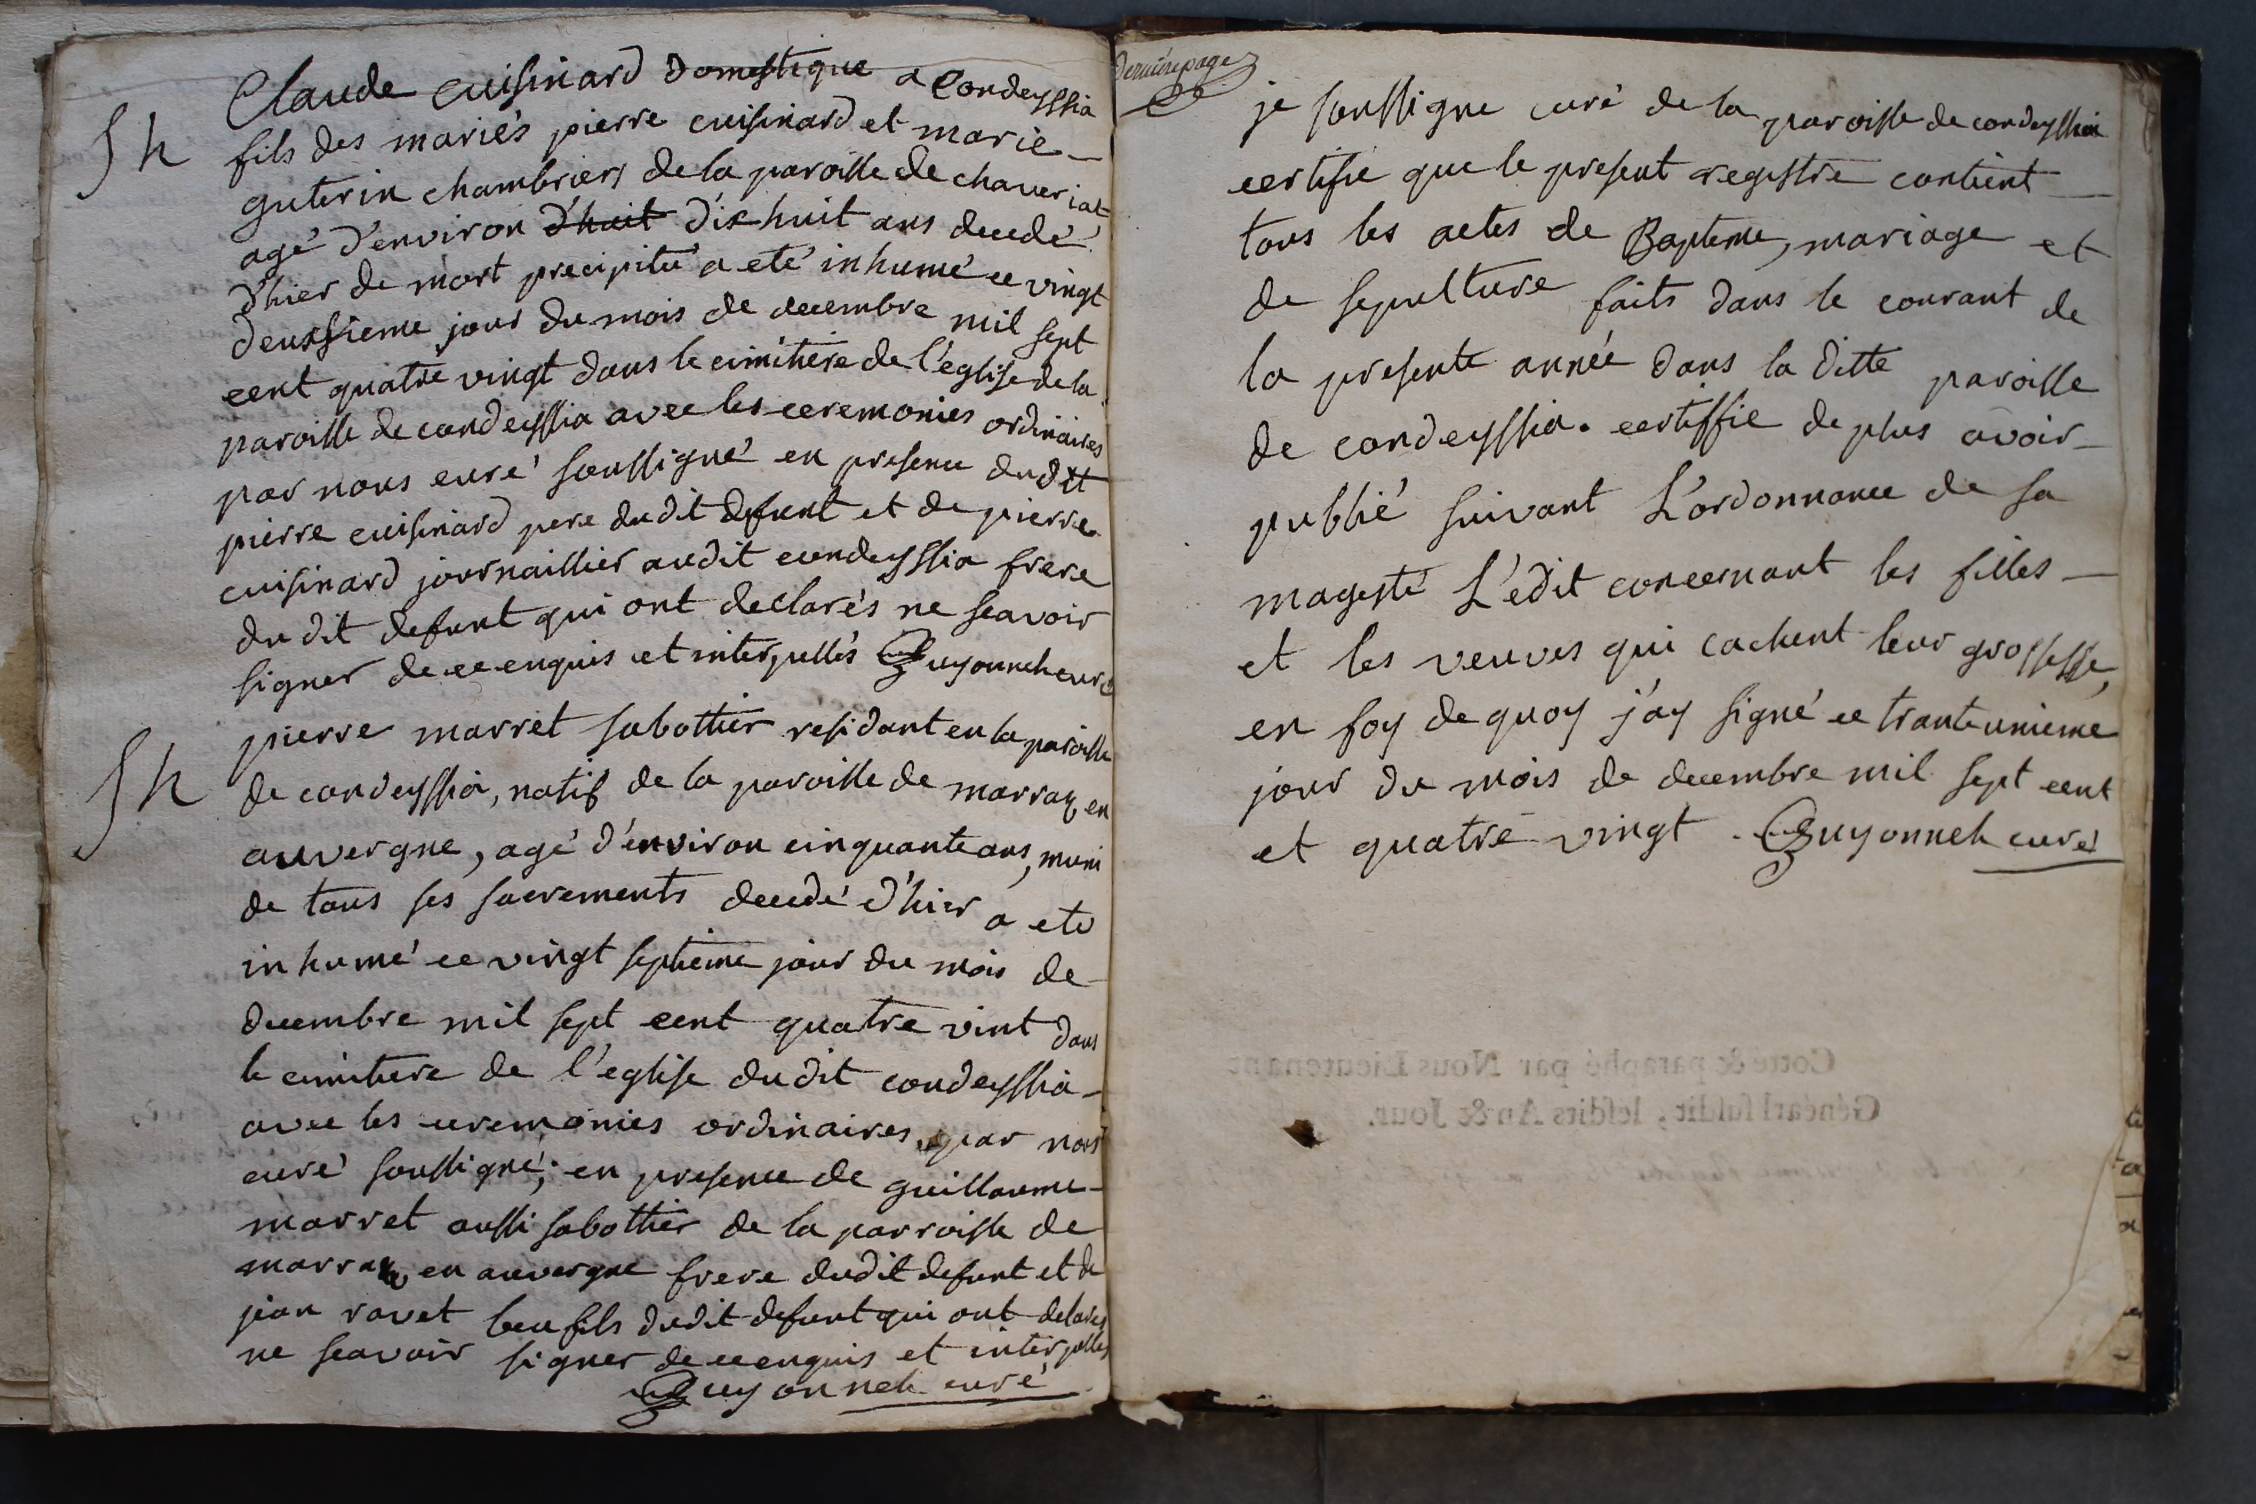 Claude cuisinard domestique a Condeyssia
Sh
fils des mariés pierre cuisinard et marie
guterin chambriers de la paroisse de chaveriat
agé d'environ d'huit dix huit ans decedé
d'hier de mort precipitée a eté inhumé ce vingt
deuxsieme jour du mois de decembre mil sept
cent quatre vingt dans le cimitiere de l'eglise de la
paroisse de condeyssia avec les ceremonies ordinaires
par nous curé soussigné en presence dudit
pierre cuisinard pere dudit defunt et de pierre
cuisinard journaillier audit condeyssia frere
du dit defunt qui ont declarés ne scavoir
signer de ce enquis et interpellés Guyonneh curé
Sh
pierre marret sabottier residant en la paroisse
de condeyssia, natif de la paroisse de marray en
auvergne, agé d'environ cinquante ans, muni
de tous ses sacrements decedé d'hier a eté
inhumé ce vingt septieme jour du mois de
decembre mil sept cent quatre vint dans
le cimitiere de l'eglise dudit condeyssia
avec les ceremonies ordinaires, par nous
curé soussigné; en presence de guillaume
marret aussi sabottier de la parroisse de
en auvergne frere dudit defunt et de
jean ravet beufils dudit defunt qui ont declarés
ne scavoir signer de ce enquis et interpellés
Guyonneh curé
derniere page
je soussigne curé de la paroisse de condeyssia
certifie que le present registre contient
tous les actes de Bapteme, mariage et
de sepulture faits dans le courant de
la presente année dans la ditte paroisse
de condeyssia. certiffie de plus avoir
publié suivant L'ordonnance de sa
magesté L'edit concernant les filles
et les veuves qui cachent leur grossesse,
en foy de quoy j'ay signé ce trante unieme
jour du mois de decembre mil sept cent
et quatre vingt. Guyonneh curé
Cotté & paraphé par Nous Lieutenant
Génèarl susdit, lesdits An & Jour.